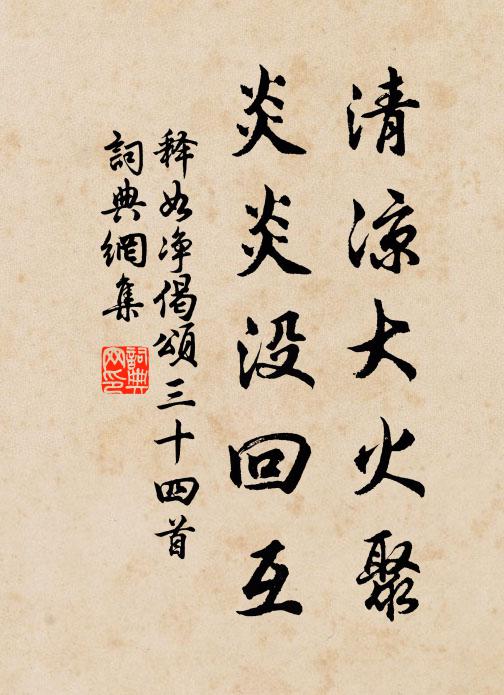 清凉大火聚
炎炎没回互
释如净偈頌三十四首
詞典網集
詞典
网印